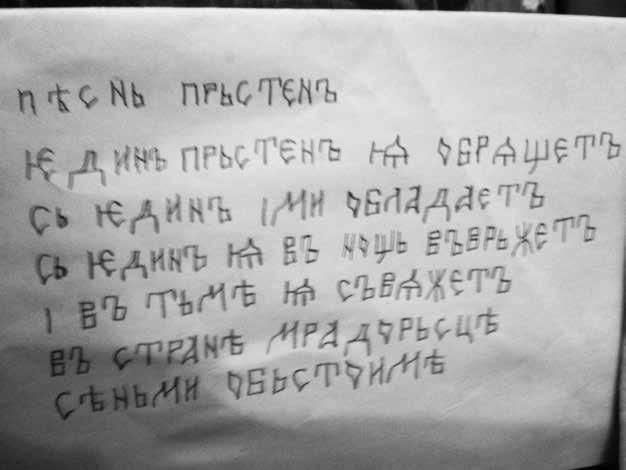 пѣснь прьстєнъ
ѥдинъ прьстєнъ ѩ обрѧщєтъ
сь ѥдинъ іми обладаєтъ
сь ѥдинъ ѩ въ нощь въврьжєтъ
і въ тьмѣ ѩ съвѧжєтъ
въ странѣ мрадорьсцѣ
сѣньми обьстоимѣ